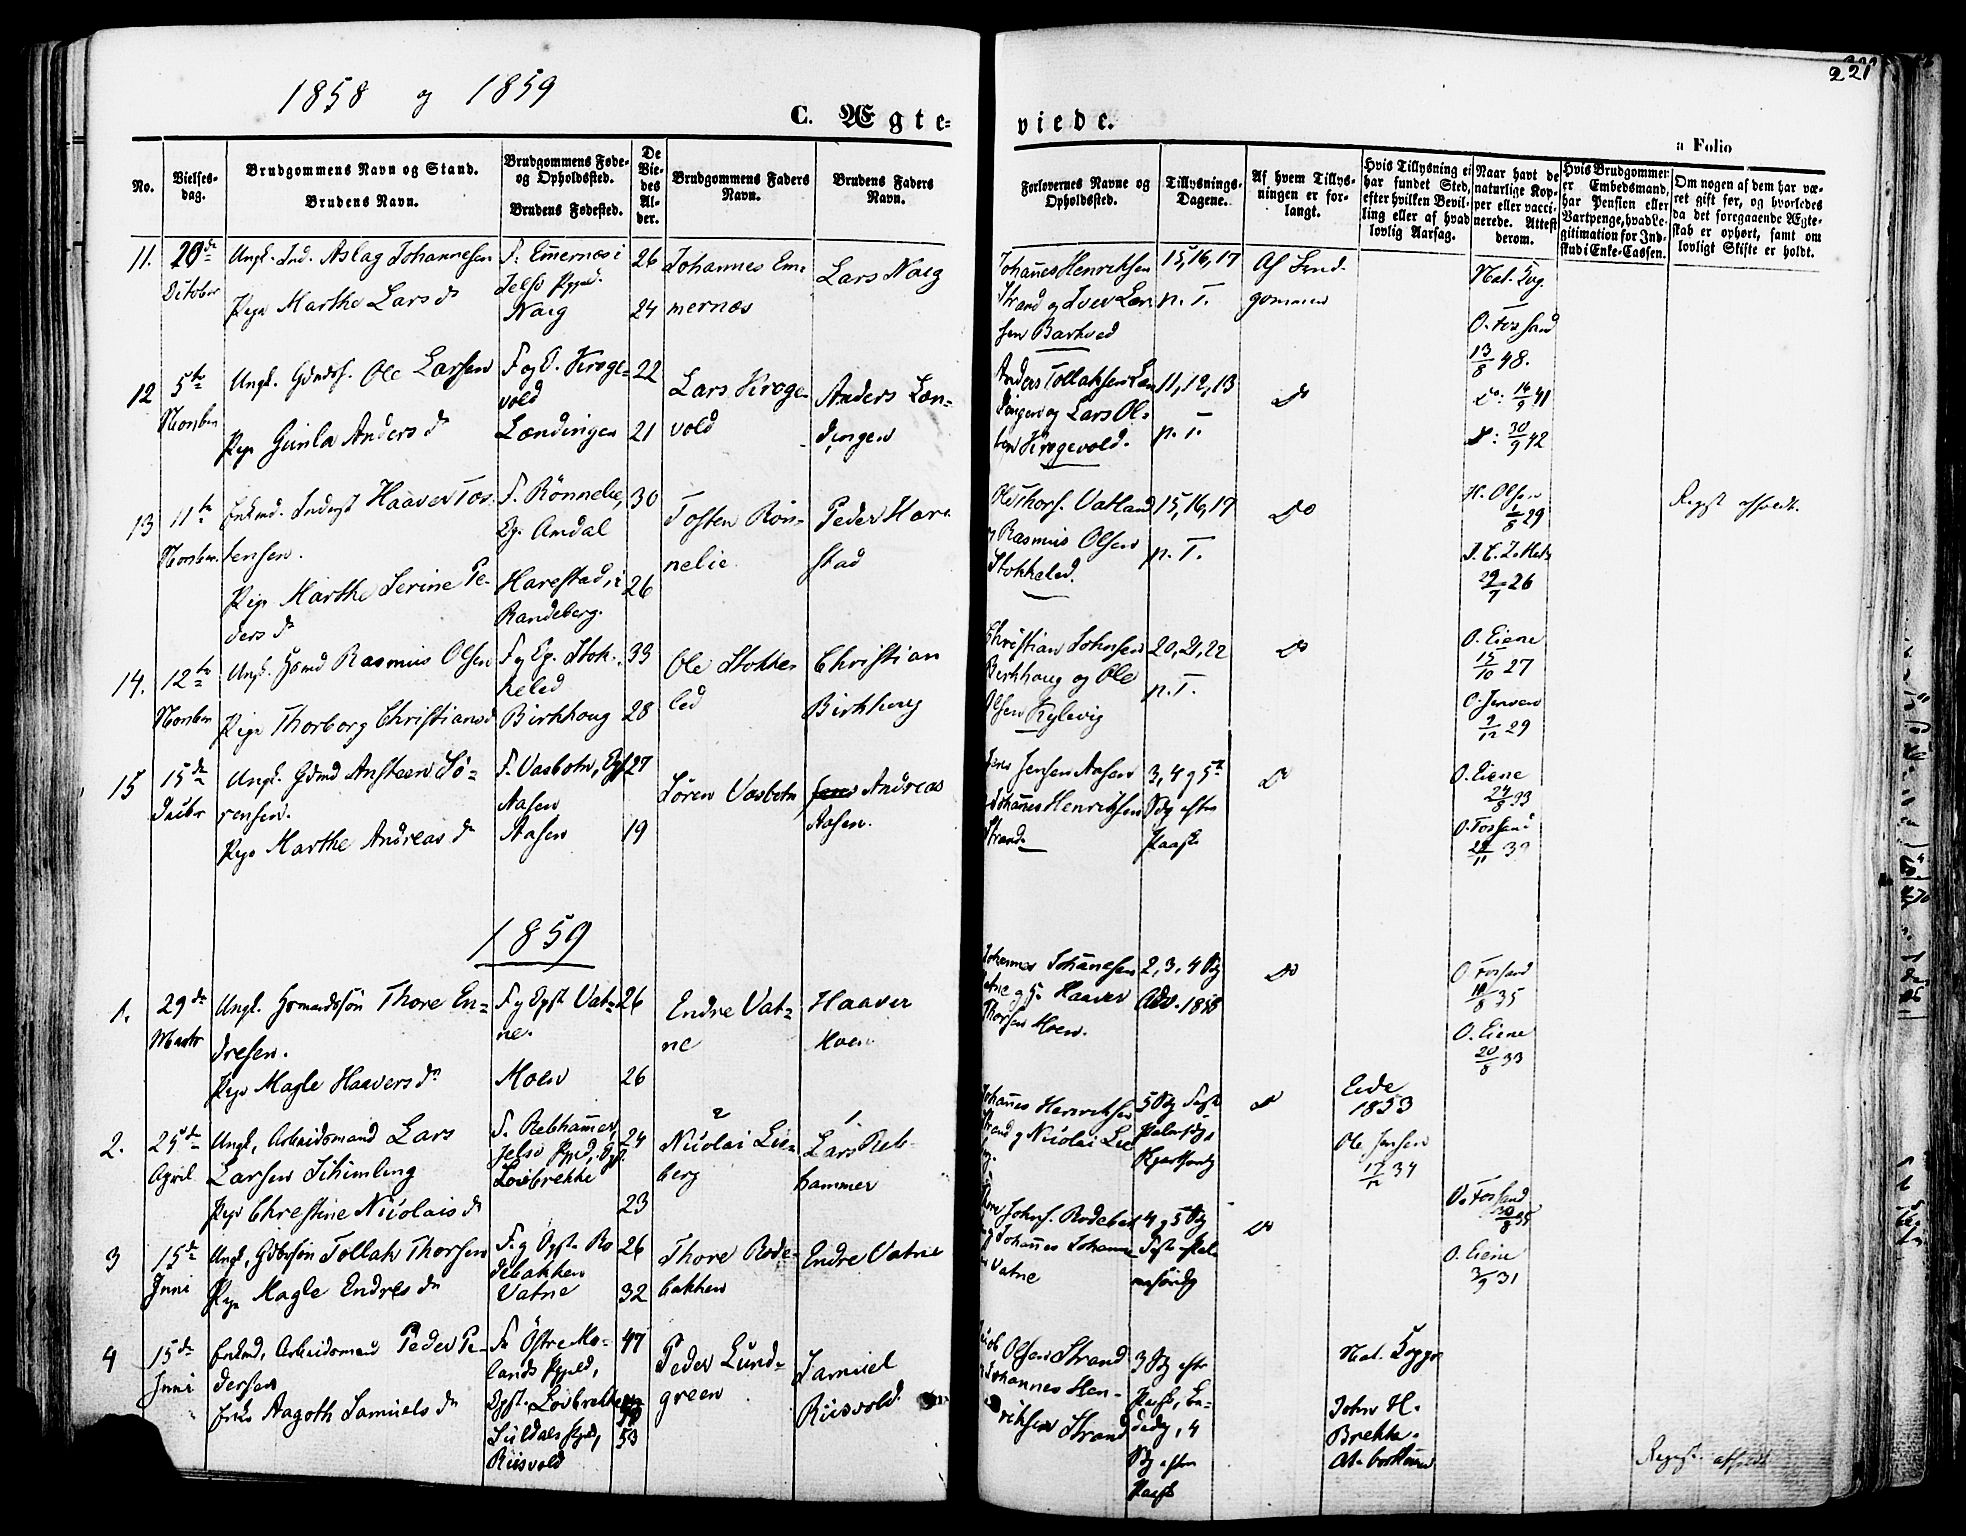 221
1858 og 1859
C. Ægteviede.
a Folio
No.
Vielses-dag.
Brudgommens Navn og Stand.
Brudens Navn.
Brudgommens Føde- og Opholdssted.
Brudens Fødested.
De Viedes Alder.
Brudgommens Faders Navn.
Brudens Faders Navn.
Forlovernes Navne og Opholdssted.
Tillysnings-Dagene.
Af hvem Tillysningen er forlangt.
Hvis Tillysning ei har fundet Sted, efter hvilken Bevilling eller af hvad lovlig Aarsag.
Naar havt de naturlige Kopper eller vaccinerede. Attest derom.
Hvis Brudgommen er Embedsmand, har Pension eller Vartpenge, hvad Legitimation for Indskud i Enke-Cassen.
Om nogen af dem har været gift før, og hvorledes da det foregaaende Ægteskab er ophørt, samt om lovligt Skifte er holdt.
11. 20de October
Ungk. Ind. Aslag Johannesen
Pige Marthe Larsdr
F. Emernæs i
Jelsø Pgjæld.
Næig
26
24
Johannes Em-
mernæs
Lars Næig
Johannes Henriksen
Strand og Iver Lar-
sen Barkved
15, 16, 17
p. T.
Af Brud-
gommen
Nat. Kop.
O. Fossand
13/8 48.
12 5te Novbr
Ungk. Gmdss. Ole Larsen
Pige Gunla Andersdr
F og O. Kroge-
vold
Lændingen
22
21
Lars Kroge-
vold
Anders Læn-
dingen
Anders Tollaksen Læn
dingen og Lars Ol-
sen Krogevold.
11, 12, 13
p. T.
Do
Do: 16/9 41
Do: 30/9 42
13 11te Novbr.
Enkmd. Inderst Haaver Tos-
tensen.
Pige Marthe Serine Pe-
dersdr
F. Rönnelie,
Eg. Amdal
Harestad, i
Randeberg.
30
26
Tosten Rön-
nelie
Peder Hare
stad
Ole Thors. Vatland
og Rasmus Olsen
Stokkeled.
15, 16, 17
p. T.
Do
H. Olsen
1/8 29
29/7 26
14. 12te Novbr
Ungk. Hsmd Rasmus Olsen
Pige Thorborg Christiansdr
F og Eg. Stok-
keled
Birkhoug
33
28
Ole Stokke-
led
Christian
Birkhoug
Christian Johnsen
Birkhoug og Ole
Olsen Kylevig
20, 21, 22
p. T.
Do
O. Eiene
15/10 27
O. Jensen
2/12 29
15 15de Decbr
Ungk. Gdmd Ansteen Sö-
rensen.
Pige Marthe Andreasdr
F. Vasbotn, Ogst
Aasen
Aasen
27
19
Sören Vasbotn
Andreas
Aasen.
Jens Jensen Aasen
Johannes Henriksen
Strand
3, 4 og 5te
Sdg efter
Paaske
Do
O. Eiene
24/8 33
O. Fossand
1859
1. 29de Marts
Ungk. Gsmandssön Thore En-
dresen.
Pige Magle Haaversdr
F og Ogst Vat-
ne.
Moen
26
26
Endre Vat-
ne
Haaver
Moen
Johannes Johannesen
Vatne og Haaver
Thorsen Moen.
2, 3, 4 Sdg
Adv. 1858
Do
O. Fossand
18/8 35
O. Eiene
20/8 33
2. 25de April
Ungk, Arbeidsmand Lars
Larsen Schimling
Pige Christine Nicolaisdr
F. Rebhammer,
Jelsø Pgjd, Ogst
Lovbrekke
24
23
2
Nicolai Lie-
berg
1.
Lars Reb-
hammer
Johannes Henriksen
Strand og Nicolai Lie
berg.
5 Sdg Fast
Palmesdg,
Skjærtorsdg
Do
Eide
1853
Ole Jensen
17/12 34
3 15de Juni
Ungk, Gdbrsön Tollak Thorsen
Pige Magle Endresdr
F. og Ogst. Ro
debakken
Vatne
26
32
Thore Rode-
bakken
Endre Vatne
Thore Johns. Rodebak
og Johannes Johanne
sen Vatne
4 og 5 Sdg
Do
O. Fossand
30/8 35
O. Eiene
3/9 31
4 15de Juni
Enkmd, Arbeidsmand Peder Pe-
dersen
Enke Aagoth Samuelsdr
F. Östre Mo-
lands Pgjeld,
Ogst. Lovbrekke
Suldals Pgjeld,
Riisvold
47
53
Peder Lund-
green
Samuel
Riisvold
Jacob Olsen Strand
og Johannes Hen-
riksen Strand
3 Sdg efter
Paaske, Be-
dedg, 4
Sdg efter
Paaske
Nat. Kopper
John H.
Brekke.